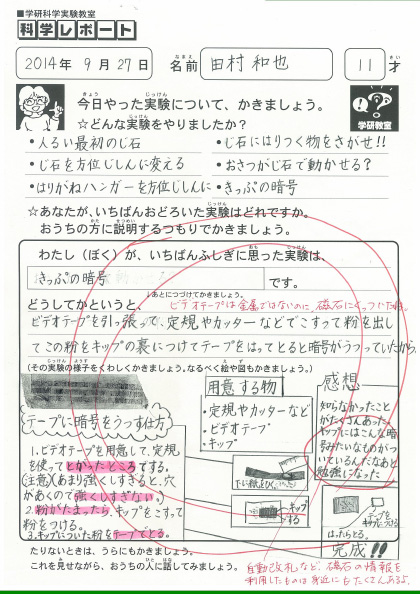 ■学研科学実験教室
科学レポート
2014年 9月 27日 名前 田村 和也 11才
なまえ さい
きょう じっけん
今日やった実験について、かきましょう。
☆どんな実験をやりましたか?
学研教室
・人るい最初のじ石 ・じ石にはりつく物をさがせ!!
・じ石を方位じしんに変える ・おさつがじ石で動かせる?
・はりがねハンガーを方位じしんに ・きっぷの暗号
☆あなたが、いちばんおどろいた実験はどれですか。
おうちの方に説明するつもりでかきましょう。
わたし(ぼく)が、いちばんふしぎに思った実験は、
きっぷの暗号 です。
↓あとにつづけてかきましょう。
どうしてかというと、 ビデオテープは金属ではないのに 磁石にくっついたね。
ビデオテープを引っ張って、定規やカッターなどでこすって粉を出し
てこの粉をキップの裏につけてテープをはってとると暗号がうつっていたから。
(その実験の様子をくわしくかきましょう。なるべく絵や図もかきましょう。)
テープに暗号をうつす仕方
1.ビデオテープを用意して、定規
を使ってとがったところでする。
(注意)(あまり強くしすぎると、穴
があくので強くしすぎない。)
2.粉がたまったら、キップをこすって
粉をつける。
3.キップについた粉をテープでとる。
用意する物
・定規やカッターなど
・ビデオテープ
・キップ
キップ
感想
知らなかったこと
がたくさんあった。
キップにはこんな暗
号みたいなものがつ
いているんだなあと
勉強になった。
テープを
キップにつける
はったらとる。
完成!!
たりないときは、うらにもかきましょう。
これを見せながら、おうちの人に話してみましょう。
自動改札など、磁石の情報を
利用したものは身近にもたくさんあるよ。